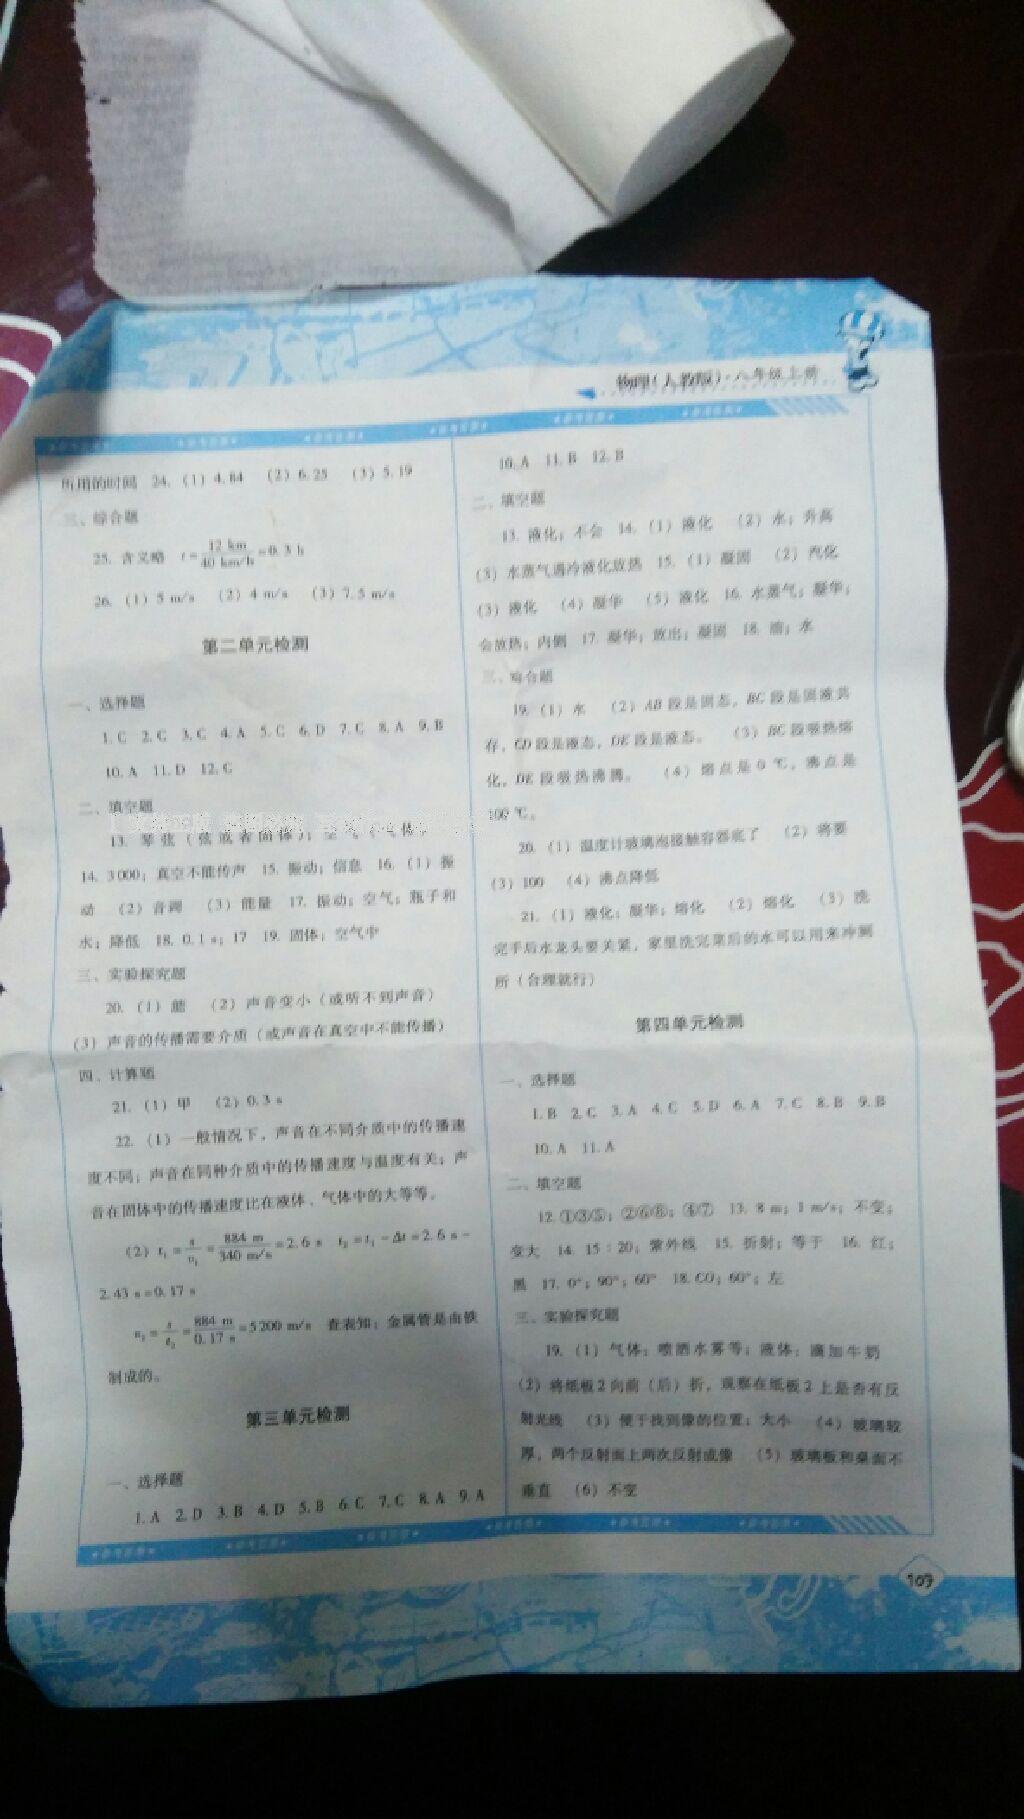 物理(人教版)·八年级上册
所用的时间 24.(1)4.84 (2)6.25 (3)5.19
三、综合题
25. 含义略 t=12 km/40 km/h=0.3 h
26.(1)5 m/s (2)4 m/s (3)7.5 m/s
第二单元检测
一、选择题
1.C 2.C 3.C 4.A 5.C 6.D 7.C 8.A 9.B
10.A 11.D 12.C
二、填空题
13. 琴弦(弦或者固体);空气
14. 3 000;真空不能传声 15. 振动;信息 16.(1)振
动 (2)音调 (3)能量 17. 振动;空气;瓶子和
水;降低 18. 0.1 s;17 19. 固体;空气中
三、实验探究题
20.(1)能 (2)声音变小(或听不到声音)
(3)声音的传播需要介质(或声音在真空中不能传播)
四、计算题
21.(1)甲 (2)0.3 s
22.(1)一般情况下,声音在不同介质中的传播速
度不同;声音在同种介质中的传播速度与温度有关;声
音在固体中的传播速度比在液体、气体中的大等等。
(2)t₁=s/v₁=884 m/340 m/s=2.6 s t₂=t₁-Δt=2.6 s-
2.43 s=0.17 s
v₂=s/t₂=884 m/0.17 s=5 200 m/s 查表知:金属管是由铁
制成的。
第三单元检测
一、选择题
1.A 2.D 3.B 4.D 5.B 6.C 7.C 8.A 9.A
10.A 11.B 12.B
二、填空题
13. 液化;不会 14.(1)液化 (2)水;升高
(3)水蒸气遇冷液化放热 15.(1)凝固 (2)汽化
(3)液化 (4)凝华 (5)液化 16. 水蒸气;凝华;
会放热;内侧 17. 凝华;放出;凝固 18. 油;水
三、综合题
19.(1)水 (2)AB段是固态,BC段是固液共
存,CD段是液态,DE段是液态。 (3)BC段吸热熔
化,DE段吸热沸腾。 (4)熔点是0 ℃,沸点是
100 ℃。
20.(1)温度计玻璃泡接触容器底了 (2)将要
(3)100 (4)沸点降低
21.(1)液化;凝华;熔化 (2)熔化 (3)洗
完手后水龙头要关紧,家里洗完菜后的水可以用来冲厕
所(合理就行)
第四单元检测
一、选择题
1.B 2.C 3.A 4.C 5.D 6.A 7.C 8.B 9.B
10.A 11.A
二、填空题
12. ①③⑤;②⑥⑧;④⑦ 13. 8 m;1 m/s;不变;
变大 14. 15∶20;紫外线 15. 折射;等于 16. 红;
黑 17. 0°;90°;60° 18. CO;60°;左
三、实验探究题
19.(1)气体:喷洒水雾等;液体:滴加牛奶
(2)将纸板2向前(后)折,观察在纸板2上是否有反
射光线 (3)便于找到像的位置;大小 (4)玻璃较
厚,两个反射面上两次反射成像 (5)玻璃板和桌面不
垂直 (6)不变
107